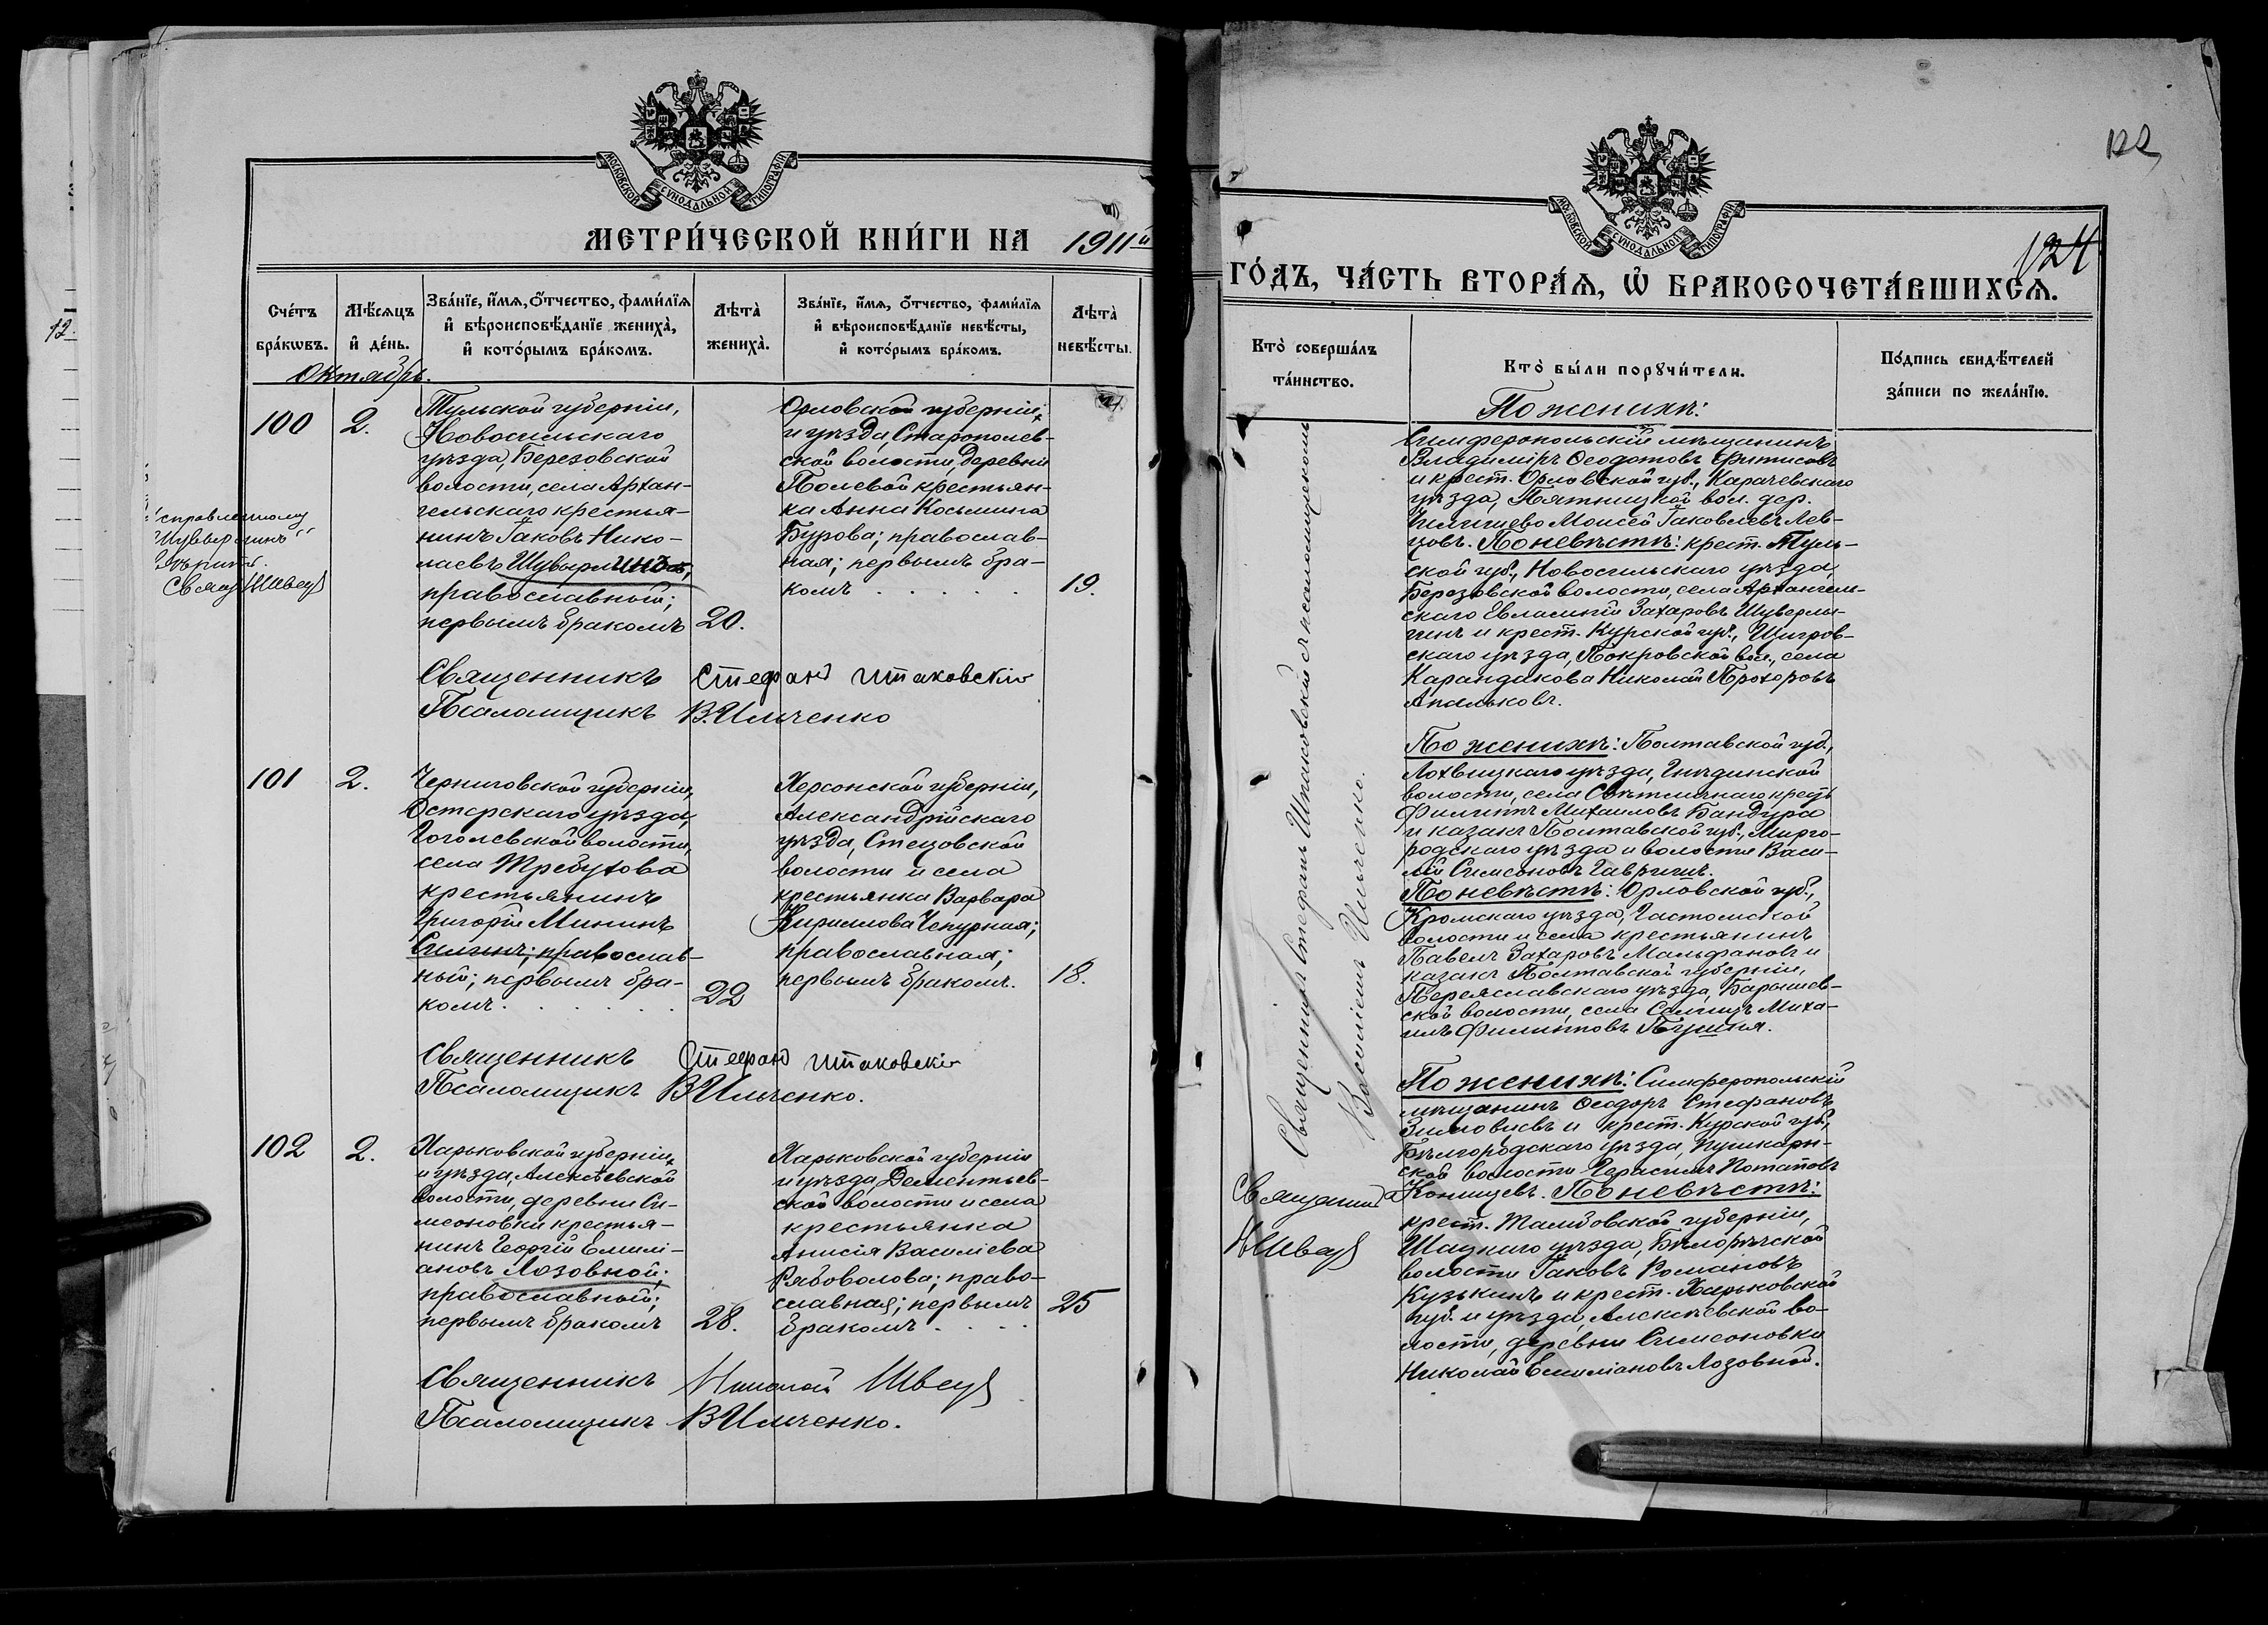 МОСКОВСКОЙ СѴНОДАЛЬНОЙ ТИПОГРАФІИ
МЕТРИ́ЧЕСКОЙ КНИ́ГИ НА 1911й
Сче́тъ бра́кѡвъ.
Мѣ́сѧцъ и҆ де́нь.
Зва́нїе, и҆́мѧ, ѻ҆́тчество, фами́лїѧ
и҆ вѣроисповѣ́данїе жениха̀,
и҆ кото́рымъ бра́комъ.
Лѣта̀ жениха̀.
Зва́нїе, и҆́мѧ, ѻ҆́тчество, фами́лїѧ
и҆ вѣроисповѣ́данїе невѣ́сты,
и҆ кото́рымъ бра́комъ.
Лѣта̀ невѣ́сты.
12.
Октябрь.
100
2.
Тульской губерніи,
Новосильскаго
уѣзда, Березовской
волости, села Архан-
гельскаго крестья-
нинъ Іаковъ Нико-
лаевъ Шувырлинъ,
православный;
первымъ бракомъ
20.
Орловской губерніи
и уѣзда, Старополев-
ской волости, деревни
Полевой крестьян-
ка Анна Косьмина
Бурова; православ-
ная; первымъ бра-
комъ . . . . .
19.
исправленному
вѣрить.
Свящ НШвец
Священникъ Стефанъ Шпаковскій
Псаломщикъ В.Ильченко
101
2.
Черниговской губерніи,
Остерскаго уѣзда,
Гоголевской волости,
села Требухова
крестьянинъ
Григорій Мининъ
православ-
ный; первымъ бра-
комъ . . . . . .
22
Херсонской губерніи,
Александрійскаго
уѣзда, Стецовской
волости и села
крестьянка Варвара
Кириллова Чепурная;
православная;
первымъ бракомъ.
18.
Священникъ Стефанъ Шпаковскій
Псаломщикъ ВИльченко.
102
2.
Харьковской губерніи
и уѣзда, Алексѣевской
волости, деревни Си-
меоновки крестья-
нинъ Георгій Емилі-
ановъ Лозовной;
православный;
первымъ бракомъ
28.
Харьковской губерніи
и уѣзда Дементьев-
ской волости и села
крестьянка
Анисія Василіева
Рябоволова; право-
славная; первымъ
бракомъ . . . .
25
Священникъ Николай Швец
Псаломщикъ ВИльченко.
МОСКОВСКОЙ СѴНОДАЛЬНОЙ ТИПОГРАФІИ
122
124
ГО́ДЪ, ЧА́СТЬ ВТОРА́Ѧ, Ѡ҆ БРАКОСОЧЕТА́ВШИХСѦ.
Кто̀ соверша́лъ
та́инство.
Кто̀ бы́ли порꙋчи́тели.
По́дпись свидѣ́телей
за́писи по жела́нїю.
Священникъ Стефанъ Шпаковскій съ псаломщикомъ
Василіемъ Ильченко.
По женихѣ:
Симферопольскій мѣщанинъ
Владиміръ Ѳеодотовъ
и крест. Орловской губ., Карачевскаго
уѣзда, Пятницкой вол. дер.
Моисей Іаковлевъ Лев-
цовъ. По невѣстѣ: крест. Туль-
ской губ., Новосильскаго уѣзда
Березовской волости, села Архангель-
скаго Евлампій Захаровъ Шуверлы-
гинъ и крест. Курской губ., Щигров-
скаго уѣзда, Покровской вол., села
Карандакова Николай Прохоровъ
Апальковъ.
По женихѣ: Полтавской губ.,
Лохвицкаго уѣзда, Гнѣдинской
волости, села Свѣтличнаго крест.
Филиппъ Михаиловъ Бандура
и казакъ Полтавской губ., Мирго-
родскаго уѣзда и волости Васи-
лій Симеоновъ Гавришъ.
По невѣстѣ: Орловской губ.,
Кромскаго уѣзда, Гастомской
волости и села крестьянинъ
Павелъ Захаровъ Мальфановъ и
казакъ Полтавской губерніи,
Переяславскаго уѣзда, Барышев-
ской волости, села Селищъ Миха-
илъ Филипповъ Пушкя.
По женихѣ: Симферопольскій
мѣщанинъ Ѳеодоръ Стефановъ
Зиновьевъ и крест. Курской губ.,
Бѣлгородскаго уѣзда, Пушкарн-
ской волости Герасимъ Потаповъ
Конищевъ. По невѣстѣ:
крест. Тамбовской губерніи,
Шацкаго уѣзда, Бѣлорѣчской
волости Іаковъ Романовъ
Кузькинъ и крест. Харьковской
губ. и уѣзда, Алексѣевской во-
лости, деревни Симеоновки
Николай Емиліановъ Лозовной.
Священникъ
НШвец